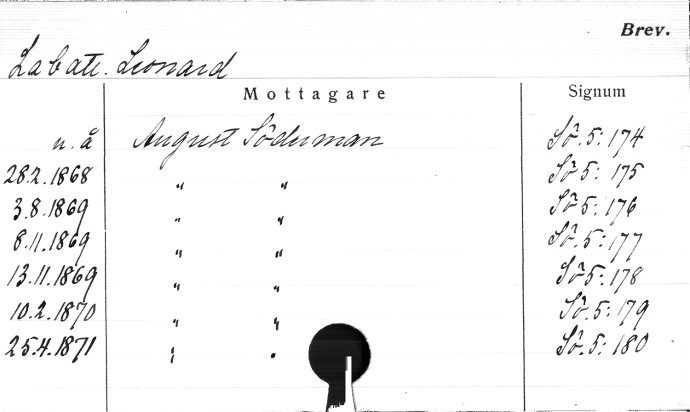 Brev.
Labatt. Leonard
Mottagare Signum
u. å August Söderman Sö. 5: 174
28.2.1868 " " Sö 5: 175
3.8.1869 " " Sö 5: 176
8.11.1869 " " Sö. 5: 177
13.11.1869 " " Sö 5: 178
10.2.1870 " " Sö. 5: 179
25.4.1871 " " Sö. 5: 180